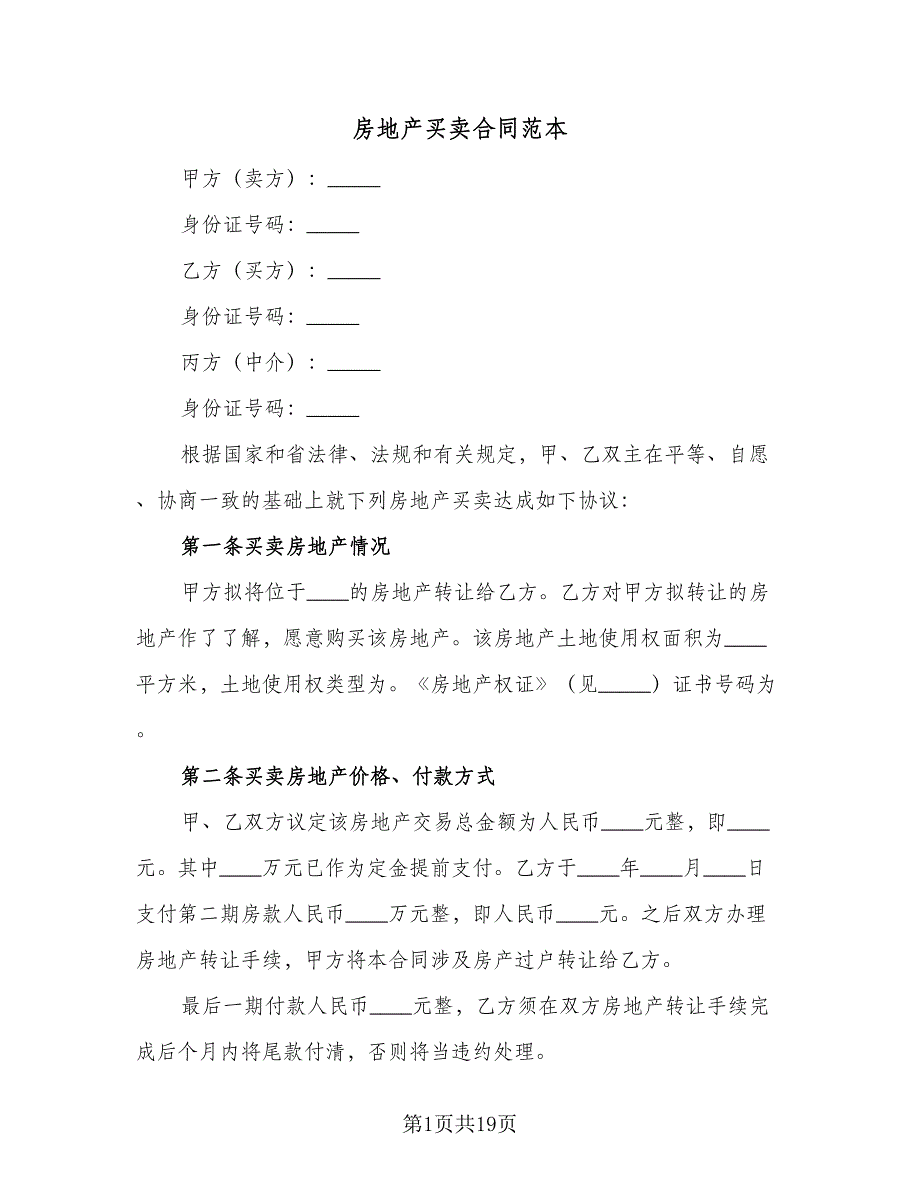 房地产买卖合同范本
甲方（卖方）：_____
身份证号码：_____
乙方（买方）：_____
身份证号码：_____
丙方（中介）：_____
身份证号码：_____
根据国家和省法律、法规和有关规定，甲、乙双主在平等、自愿
、协商一致的基础上就下列房地产买卖达成如下协议：
第一条买卖房地产情况
甲方拟将位于____的房地产转让给乙方。乙方对甲方拟转让的房
地产作了了解，愿意购买该房地产。该房地产土地使用权面积为____
平方米，土地使用权类型为。《房地产权证》（见_____）证书号码为
。
第二条买卖房地产价格、付款方式
甲、乙双方议定该房地产交易总金额为人民币____元整，即____
元。其中____万元已作为定金提前支付。乙方于____年____月____日
支付第二期房款人民币____万元整，即人民币____元。之后双方办理
房地产转让手续，甲方将本合同涉及房产过户转让给乙方。
最后一期付款人民币____元整，乙方须在双方房地产转让手续完
成后个月内将尾款付清，否则将当违约处理。
第1页共19页